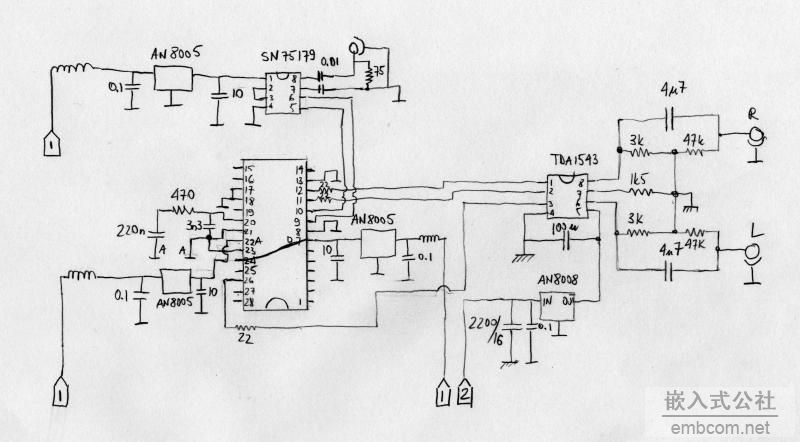 AN8005
SN75179
0.01
75
0.1
10
1 8
2 7
3 6
4 5
1
4µ7
R
3k
47k
TDA1543
1 8
2 7
3 6
4 5
1k5
3k
47K
L
4µ7
100µ
15 14
16 13
17 12
18 11
19 10
20 9
21 8
22A D7
23
24
25
26
27
28 1
22
470
3n3
220n
A A
AN8005
0.1
10
AN8005
10
0.1
22
AN8008
IN OU
2200/16
0.1
1
1
2
嵌入式公社
embcom.net